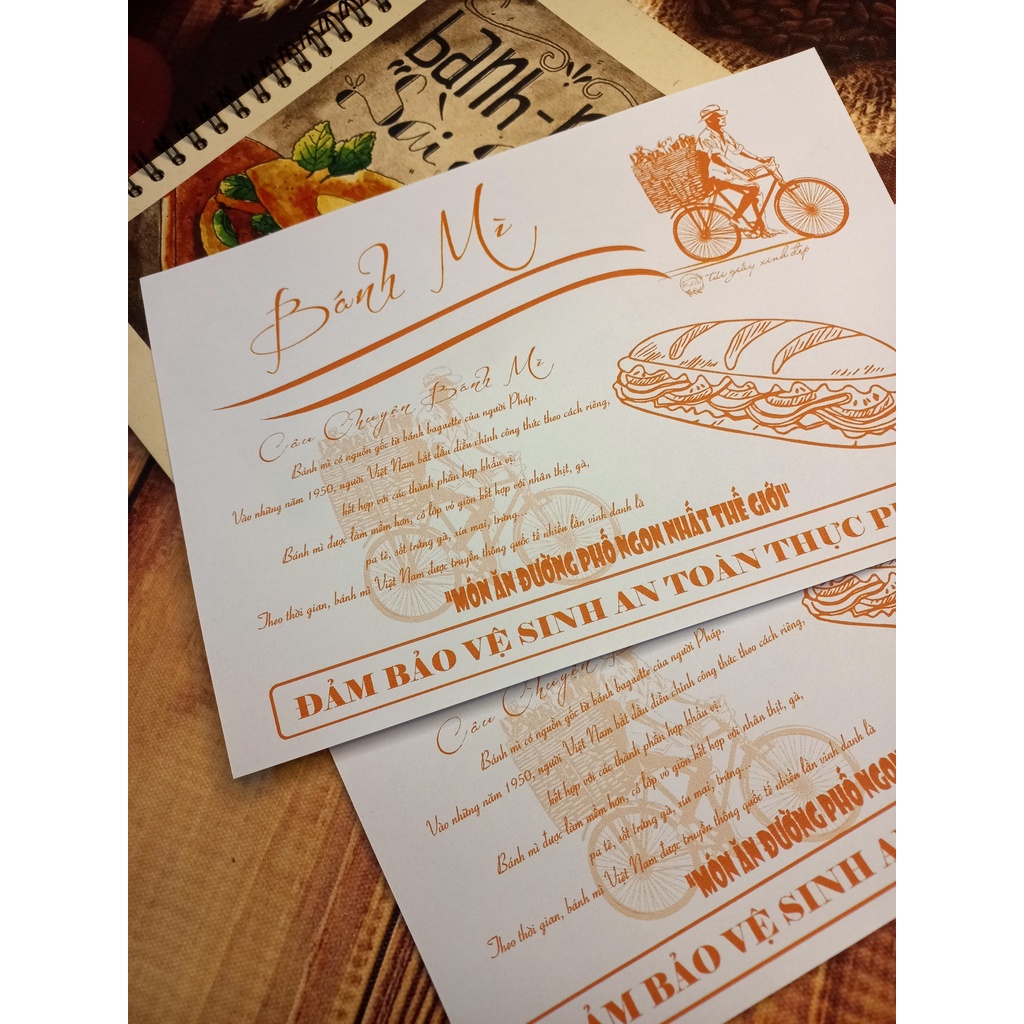 bánh-
Sài
Bánh Mì
túi giấy xinh đẹp
Câu Chuyện Bánh Mì
Bánh mì có nguồn gốc từ bánh baguette của người Pháp.
Vào những năm 1950, người Việt Nam bắt đầu điều chỉnh công thức theo cách riêng,
kết hợp với các thành phần hợp khẩu vị.
Bánh mì được làm mềm hơn, có lớp vỏ giòn kết hợp với nhân thịt, gà,
pa tê, sốt trứng gà, xíu mại, trứng...
Theo thời gian, bánh mì Việt Nam được truyền thông quốc tế nhiều lần vinh danh là
"MÓN ĂN ĐƯỜNG PHỐ NGON NHẤT THẾ GIỚI"
ĐẢM BẢO VỆ SINH AN TOÀN THỰC
Câu Chuyện
Bánh mì có nguồn gốc từ bánh baguette của người Pháp.
Vào những năm 1950, người Việt Nam bắt đầu điều chỉnh công thức theo cách riêng,
kết hợp với các thành phần hợp khẩu vị.
Bánh mì được làm mềm hơn, có lớp vỏ giòn kết hợp với nhân thịt, gà,
pa tê, sốt trứng gà, xíu mại, trứng...
Theo thời gian, bánh mì Việt Nam được truyền thông quốc tế nhiều lần vinh danh là
"MÓN ĂN ĐƯỜNG PHỐ NGON
ĐẢM BẢO VỆ SINH